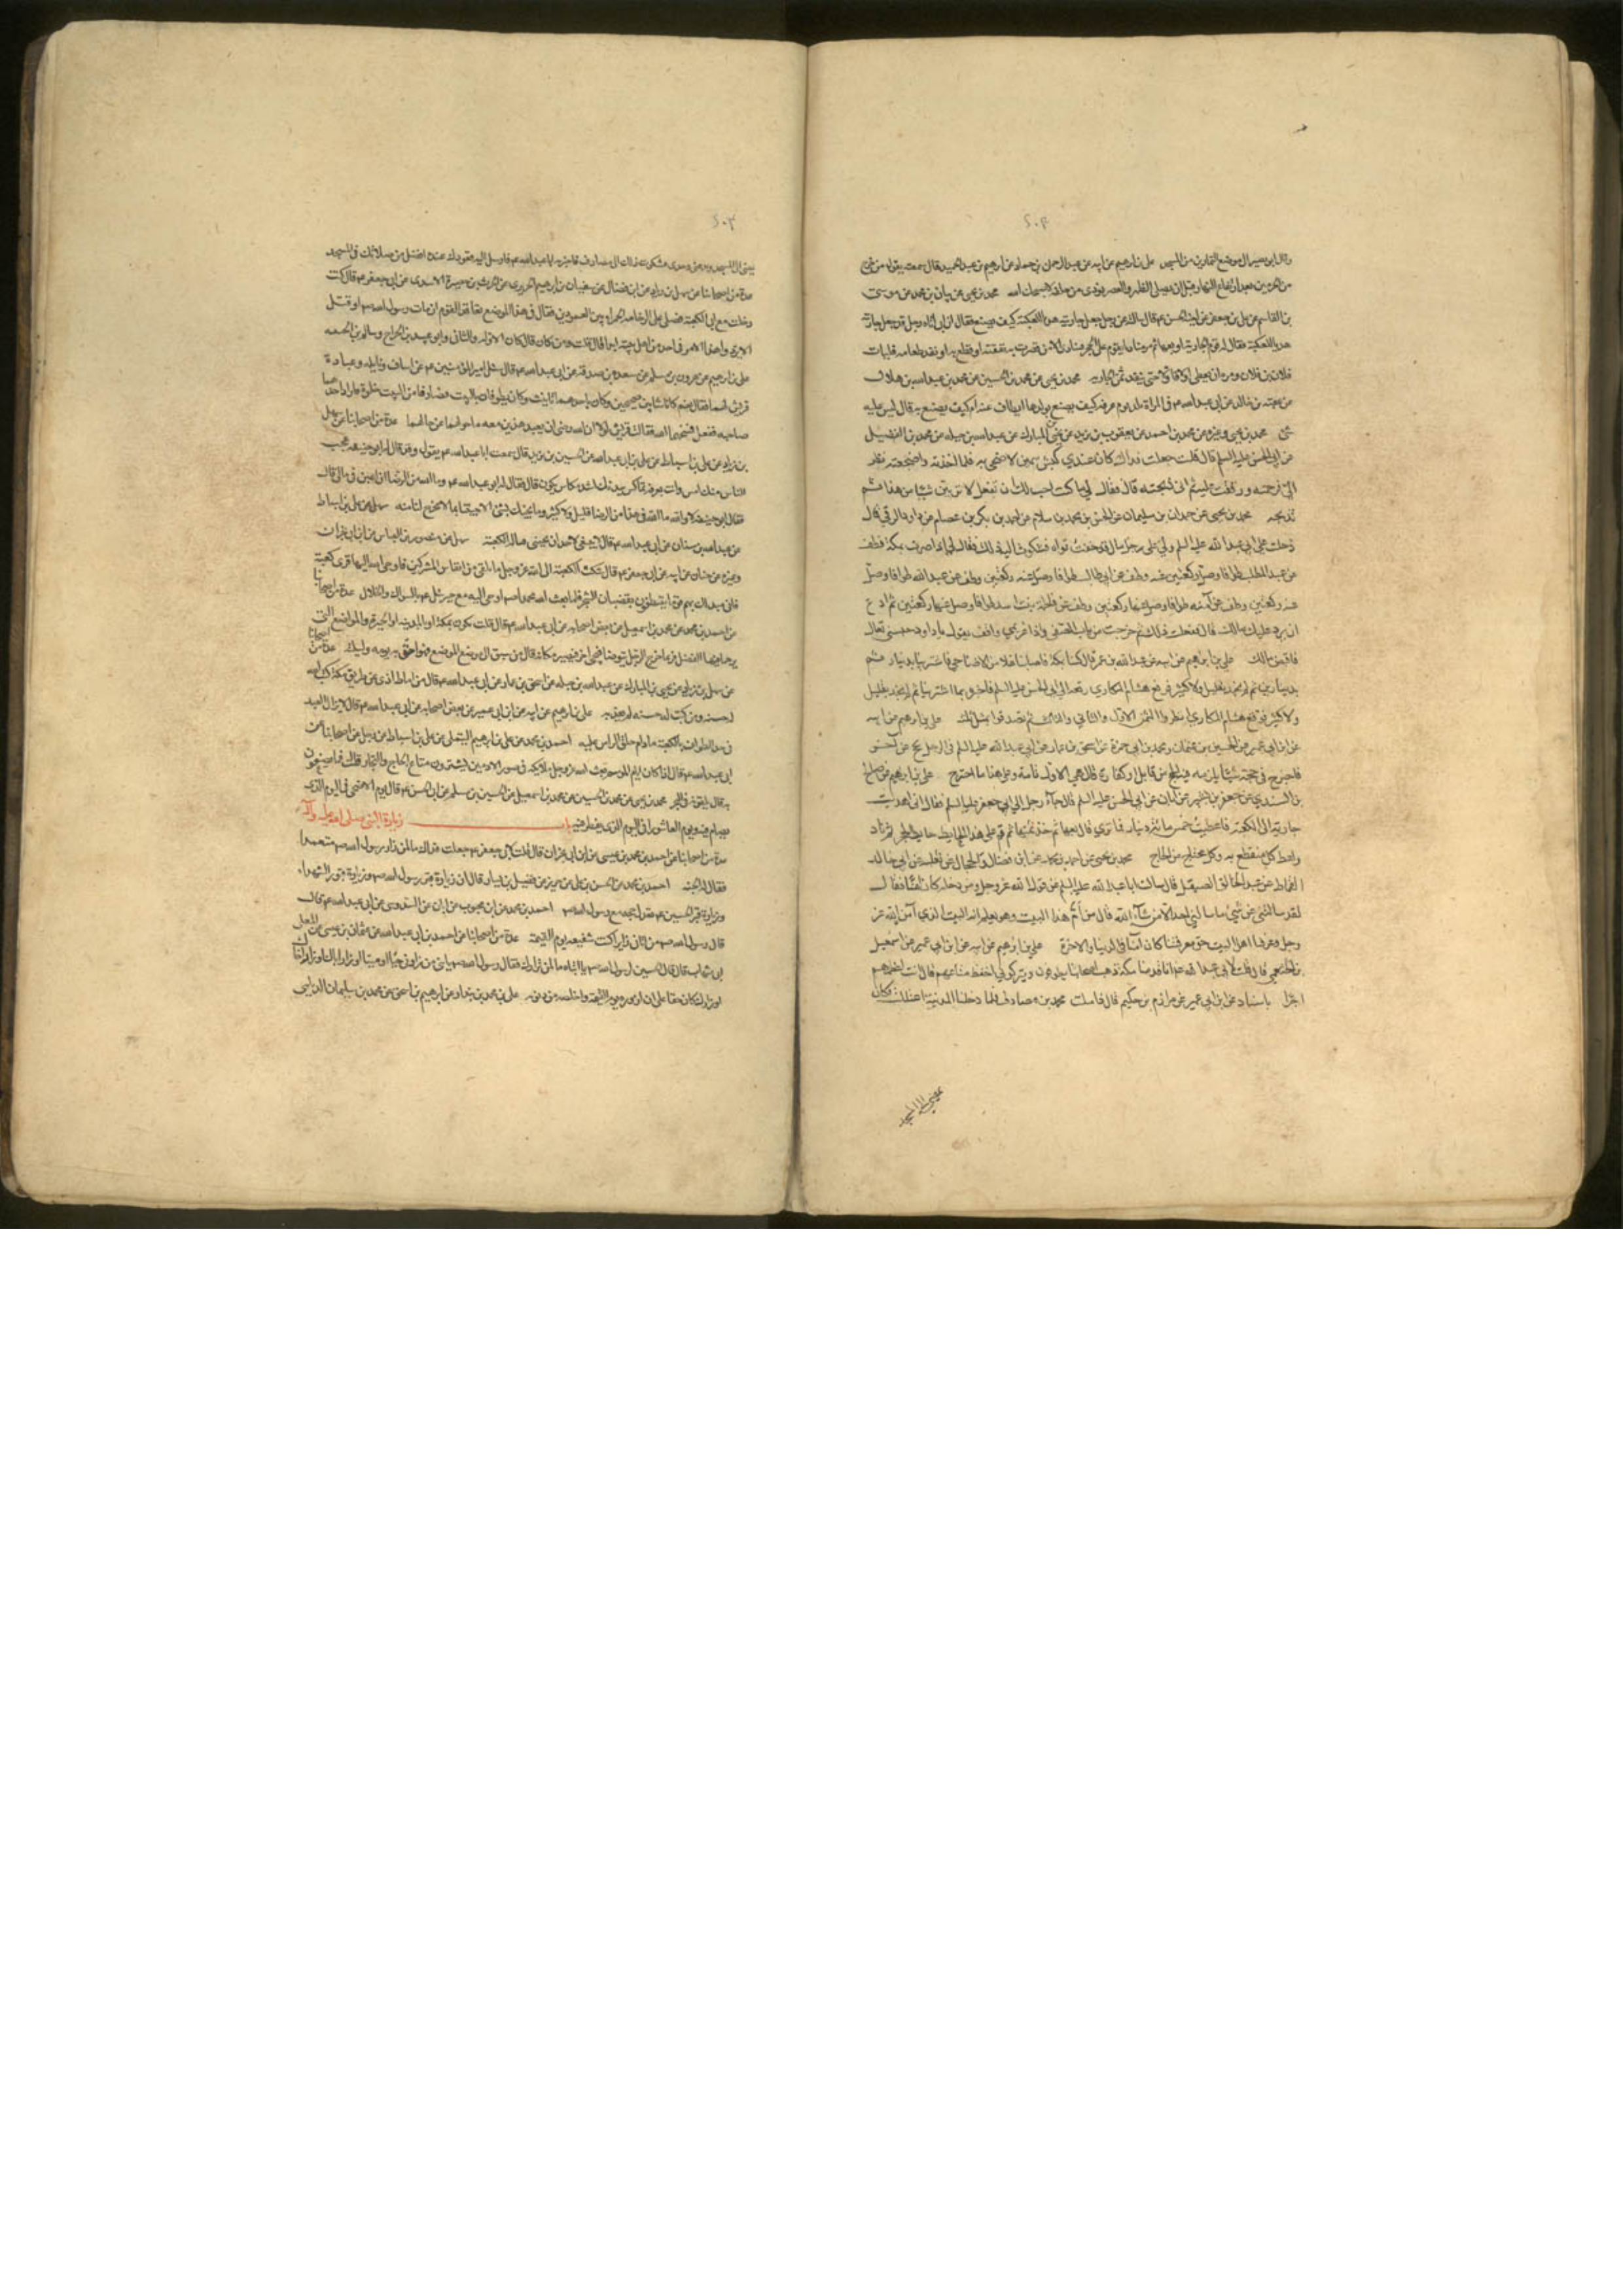 ۲۰۴
وقال ابن بصير الى موضع التمارين من المسجد علي بن ابرهيم عن ابيه عن عبد الرحمن بن حماد عن ابرهيم بن عبد الحميد قال سمعته يقول من خرج
من الحرمين بعد ارتفاع النهار قبل ان يصلي الظهر والعصر نودي من خلفه لا صحبك الله محمد بن يحيى عن بنان بن محمد عن موسى
بن القاسم عن علي بن جعفر عن ابي الحسن ع قال سالته عن رجل جعل جاريته هديا للكعبة كيف يصنع فقال ان ابي اتاه رجل قد جعل جاريته
هديا للكعبة فقال له قوم الجارية او بعها ثم مر مناديا يقوم على الحجر فينادي الا من قصرت به نفقته او قطع به او نفد طعامه فليات
فلان بن فلان ومره ان يعطي اولا فاولا حتى ينفد ثمن الجارية محمد بن يحيى عن محمد بن الحسين عن محمد بن عبد الله بن هلال
عن عقبة بن خالد عن ابي عبد الله ع في المراة تلد يوم عرفة كيف تصنع بولدها ايطاف عنه ام كيف يصنع به قال ليس عليه
شئ محمد بن يحيى وغيره عن محمد بن احمد عن يعقوب بن يزيد عن يحيى بن المبارك عن عبد الله بن جبلة عن محمد بن الفضيل
عن ابي الحسن عليه السلم قال قلت جعلت فداك كان عندي كبش سمين لاضحي به فلما اخذته واضجعته نظر
الي فرحمته ورققت عليه ثم اني ذبحته قال فقال لي ما كنت احب لك ان تفعل لا تربين شيئا من هذا ثم
تذبحه محمد بن يحيى عن حمدان بن سليمان عن الحسن بن محمد بن سلام عن احمد بن بكر بن عصام عن داود الرقي قال
دخلت على ابي عبد الله عليه السلم ولي على رجل مال قد خفت تواه فشكوت اليه ذلك فقال لي اذا صرت بمكة فطف
عن عبد المطلب طوافا وصل ركعتين عنه وطف عن ابي طالب طوافا وصل عنه ركعتين وطف عن عبد الله طوافا وصل
عنه ركعتين وطف عن آمنه طوافا وصل عنها ركعتين وطف عن فاطمة بنت اسد طوافا وصل عنها ركعتين ثم ادع
ان يرد عليك مالك قال ففعلت ذلك ثم خرجت من باب الصفا فاذا غريمي واقف يقول يا داود حبستني تعال
فاقبض مالك علي بن ابراهيم عن ابيه عن عبد الله بن عمر قال كنا بمكة فاصابنا غلاء من الاضاحي فاشترينا بدينار ثم
بدينارين ثم لم نجد بقليل ولا كثير فرقع هشام المكاري رقعة الى ابي الحسن عليه السلم فاخبره بما اشترينا ثم لم نجد بقليل
ولا كثير فوقع هشام المكاري انظروا الثمن الاول والثاني والثالث ثم تصدقوا بمثل ثلثه علي بن ابرهيم عن ابيه
عن ابن ابي عمير عن الحسين بن عثمان ومحمد بن ابي حمزة عن اسحق بن عمار عن ابي عبد الله عليه السلم في الرجل يحج عن آخر
فاجترح في حجته شيئا يلزمه فيه الحج من قابل او كفارة قال هي للاول تامة وعلى هذا ما اجترح علي بن ابراهيم عن صالح
بن السندي عن جعفر بن بشير عن ابان عن ابي الحسن عليه السلم قال جاء رجل الى ابي جعفر عليه السلم فقال اني اهديت
جارية الى الكعبة فاعطيت خمس مائة دينار فما ترى قال بعها ثم خذ ثمنها ثم قم على هذا الحايط حايط الحجر ثم ناد
واعط كل منقطع به وكل محتاج من الحاج محمد بن يحيى عن احمد بن محمد عن ابن فضال عن ثعلبة عن ابي خالد
القماط عن عبد الخالق الصيقل قال سالت ابا عبد الله عليه السلم عن قول الله عز وجل ومن دخله كان آمنا فقال
لقد سالتني عن شئ ما سالني احد الا من شاء الله قال من ام هذا البيت وهو يعلم انه البيت الذي امر الله عز
وجل وعرفنا اهل البيت حق معرفتنا كان آمنا في الدنيا والاخرة علي بن ابرهيم عن ابيه عن ابن ابي عمير عن اسمعيل
بن الخثعمي قال قلت لابي عبد الله ع انا اذا قدمنا مكة ذهب اصحابنا يطوفون ويتركوني احفظ متاعهم قال انت اعظمهم
اجرا باسناده عن ابن ابي عمير عن مرازم بن حكيم قال زاملت محمد بن مصادف فلما دخلنا المدينة اعتللت فكان
يمضي الى المسجد
۲۰۳
يمضي الى المسجد ويدعني وحدي فشكوت ذلك الى مصادف فاخبر به ابا عبد الله ع فارسل اليه قعودك عنده افضل من صلاتك في المسجد
عدة من اصحابنا عن سهل بن زياد عن ابن فضال عن سفيان بن ابرهيم الحريري عن الحرث بن حصيرة الاسدي عن ابي جعفر ع قال كنت
دخلت مع ابي الكعبة فصلى على الرخامة الحمراء بين العمودين فقال في هذا الموضع تعاقد القوم ان مات رسول الله ص او قتل
الا يردوا هذا الامر في احد من اهل بيته ابدا قال قلت ومن كان قال كان الاول والثاني وابو عبيدة بن الجراح وسالم بن الحبيبه
علي بن ابرهيم عن هرون بن مسلم عن مسعدة بن صدقة عن ابي عبد الله ع قال سئل امير المؤمنين ع عن اساف ونايلة وعبادة
قريش لهما فقال نعم كانا شابين صبيحين وكان باحدهما تانيث وكانا يطوفان بالبيت فصادفا من البيت خلوة فاراد احدهما
صاحبه ففعل فمسخهما الله فقالت قريش لولا ان الله رضي ان يعبد هذين معه ما حولهما عن حالهما عدة من اصحابنا عن سهل
بن زياد عن علي بن اسباط عن علي بن ابي عبد الله عن الحسين بن يزيد قال سمعت ابا عبد الله ع يقول وقد قال له ابو حنيفة عجب
الناس منك امس وانت بعرفة تماكس ببدنك اشد مكاس يكون قال فقال له ابو عبد الله ع وما لله من الرضا ان اغبن في مالي قال
فقال ابو حنيفة لا والله ما لله في هذا من الرضا قليل ولا كثير وما نجيئك بشئ الا جئتنا بما لا مخرج لنا منه سهل عن علي بن اسباط
عن عبد الله بن سنان عن ابي عبد الله ع قال لا ينبغي لاحد ان يحتبي قبالة الكعبة سهل عن منصور بن العباس عن ابن ابي نجران
وغيره عن حنان عن ابيه عن ابي جعفر ع قال شكت الكعبة الى الله عز وجل ما تلقى من انفاس المشركين فاوحى الله اليها قري كعبة
فاني مبدلك بهم قوما يتنظفون بقضبان الشجر فلما بعث الله محمدا ص اوحى اليه مع جبرئيل ع بالسواك والخلال عدة من اصحابنا
عن احمد بن محمد عن محمد بن اسمعيل عن بعض اصحابه عن ابي عبد الله ع قال قلت نكون بمكة او بالمدينة او الحيرة او المواضع التي
يرجى فيها الفضل فربما خرج الرجل يتوضا فيجئ اخر فيصير مكانه قال من سبق الى موضع فهو احق به يومه وليلته عدة من اصحابنا
عن سهل بن زياد عن يحيى بن المبارك عن عبد الله بن جبلة عن اسحق بن عمار عن ابي عبد الله ع قال من اماط اذى عن طريق مكة كتب الله
له حسنة ومن كتب له حسنة لم يعذبه علي بن ابرهيم عن ابيه عن ابن ابي عمير عن بعض اصحابه عن ابي عبد الله ع قال لا يزال العبد
في حد الطواف بالكعبة ما دام حلق الراس عليه احمد بن محمد عن علي بن ابرهيم التيملي عن علي بن اسباط عن رجل من اصحابنا عن
ابي عبد الله ع قال اذا كان ايام الموسم بعث الله عز وجل ملائكة في صور الادميين يشترون متاع الحاج والتجار قلت فما يصنعون
به قال يلقونه في البحر محمد بن يحيى عن محمد بن الحسين عن محمد بن اسمعيل عن الحسين بن مسلم عن ابي الحسن ع قال يوم الاضحى في اليوم الذي
يصام فيه ويوم العاشورا في اليوم الذي يفطر فيه باب زيارة النبي صلى الله عليه وآله
عدة من اصحابنا عن احمد بن محمد بن عيسى عن ابن ابي نجران قال قلت لابي جعفر ع جعلت فداك ما لمن زار رسول الله ص متعمدا
فقال له الجنة احمد بن محمد عن الحسن بن علي عن حريز عن فضيل بن يسار قال ان زيارة قبر رسول الله ص وزيارة قبور الشهداء
وزيارة قبر الحسين ع تعدل حجة مع رسول الله ص احمد بن محمد عن ابن محبوب عن ابان عن السدوسي عن ابي عبد الله ع قال
قال رسول الله ص من اتاني زايرا كنت شفيعه يوم القيمة عدة من اصحابنا عن احمد بن ابي عبد الله عن عثمان بن عيسى عن المعلى
ابن شهاب قال قال الحسين لرسول الله ص يا ابتاه ما لمن زارك فقال رسول الله ص يا بني من زارني حيا او ميتا او زار اباك او زار اخاك
او زارك كان حقا علي ان ازوره يوم القيمة واخلصه من ذنوبه علي بن محمد بن بندار عن ابراهيم بن اسحق عن محمد بن سليمان الديلمي